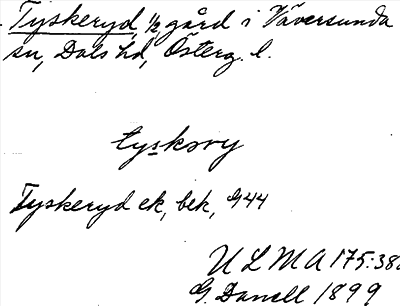 Tyskeryd, 1/2 gård i Väversunda
sn, Dals hd, Österg. l.
tyskəry
Tyskeryd ek, bek, G44
ULMA 175:38
G. Danell 1899